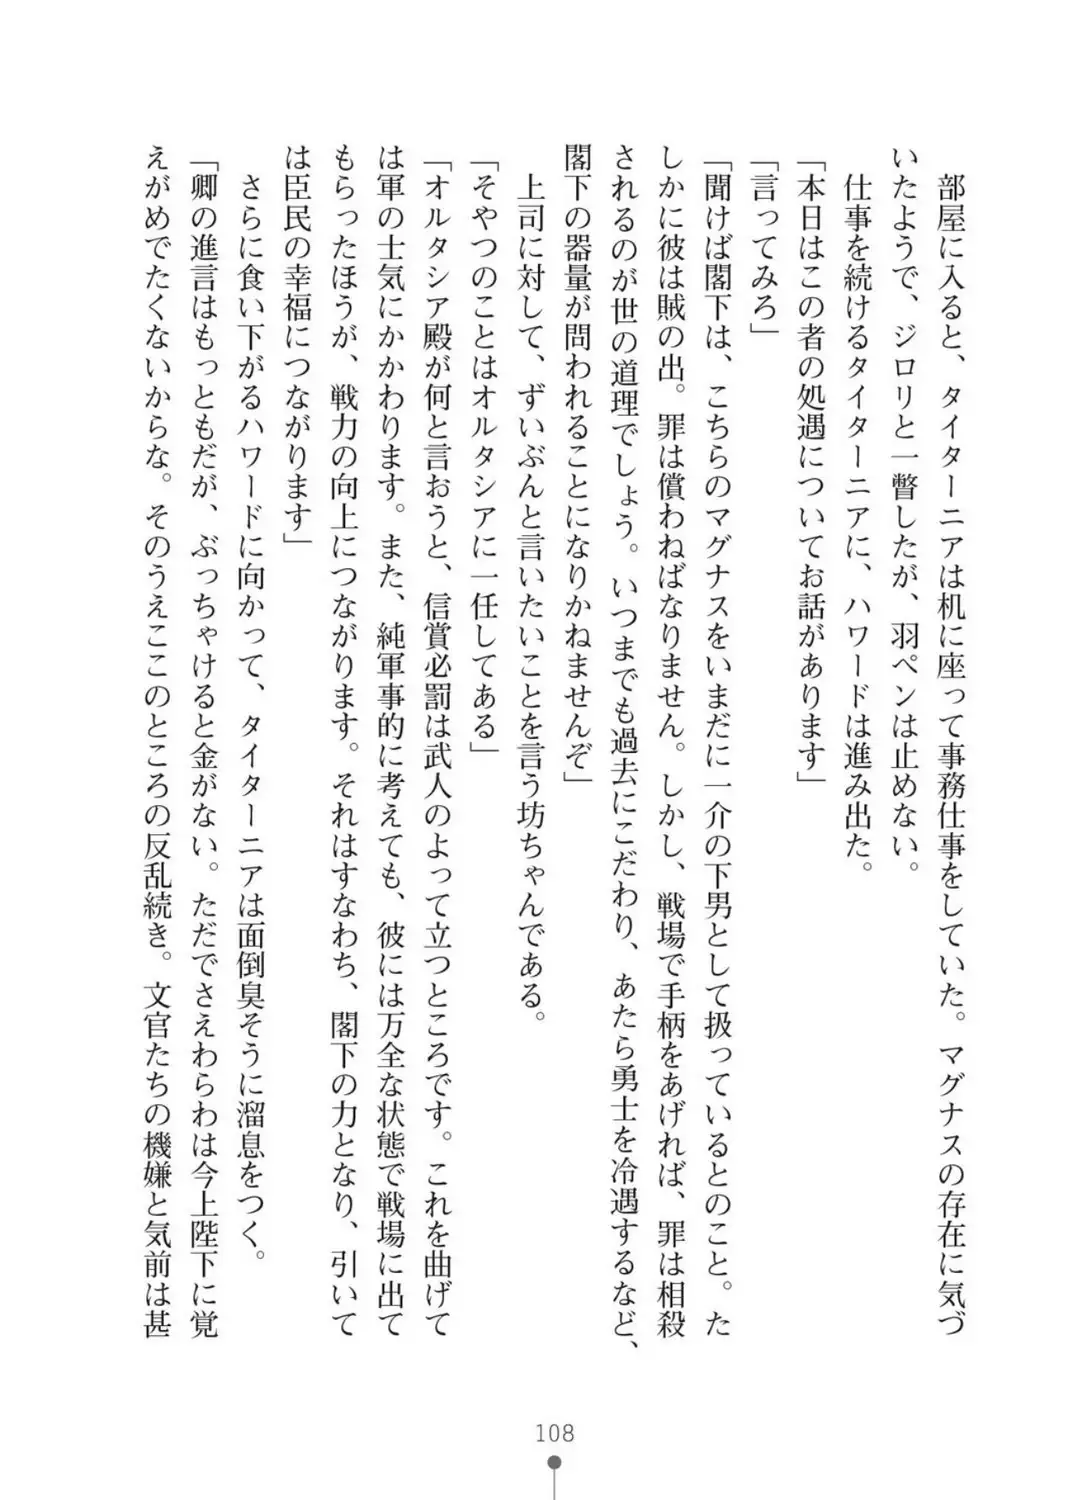 部屋に入ると、タイターニアは机に座って事務仕事をしていた。マグナスの存在に気づ
いたようで、ジロリと一瞥したが、羽ペンは止めない。
　仕事を続けるタイターニアに、ハワードは進み出た。
「本日はこの者の処遇についてお話があります」
「言ってみろ」
「聞けば閣下は、こちらのマグナスをいまだに一介の下男として扱っているとのこと。た
しかに彼は賊の出。罪は償わねばなりません。しかし、戦場で手柄をあげれば、罪は相殺
されるのが世の道理でしょう。いつまでも過去にこだわり、あたら勇士を冷遇するなど、
閣下の器量が問われることになりかねませんぞ」
　上司に対して、ずいぶんと言いたいことを言う坊ちゃんである。
「そやつのことはオルタシアに一任してある」
「オルタシア殿が何と言おうと、信賞必罰は武人のよって立つところです。これを曲げて
は軍の士気にかかわります。また、純軍事的に考えても、彼には万全な状態で戦場に出て
もらったほうが、戦力の向上につながります。それはすなわち、閣下の力となり、引いて
は臣民の幸福につながります」
　さらに食い下がるハワードに向かって、タイターニアは面倒臭そうに溜息をつく。
「卿の進言はもっともだが、ぶっちゃけると金がない。ただでさえわらわは今上陛下に覚
えがめでたくないからな。そのうえここのところの反乱続き。文官たちの機嫌と気前は甚
108